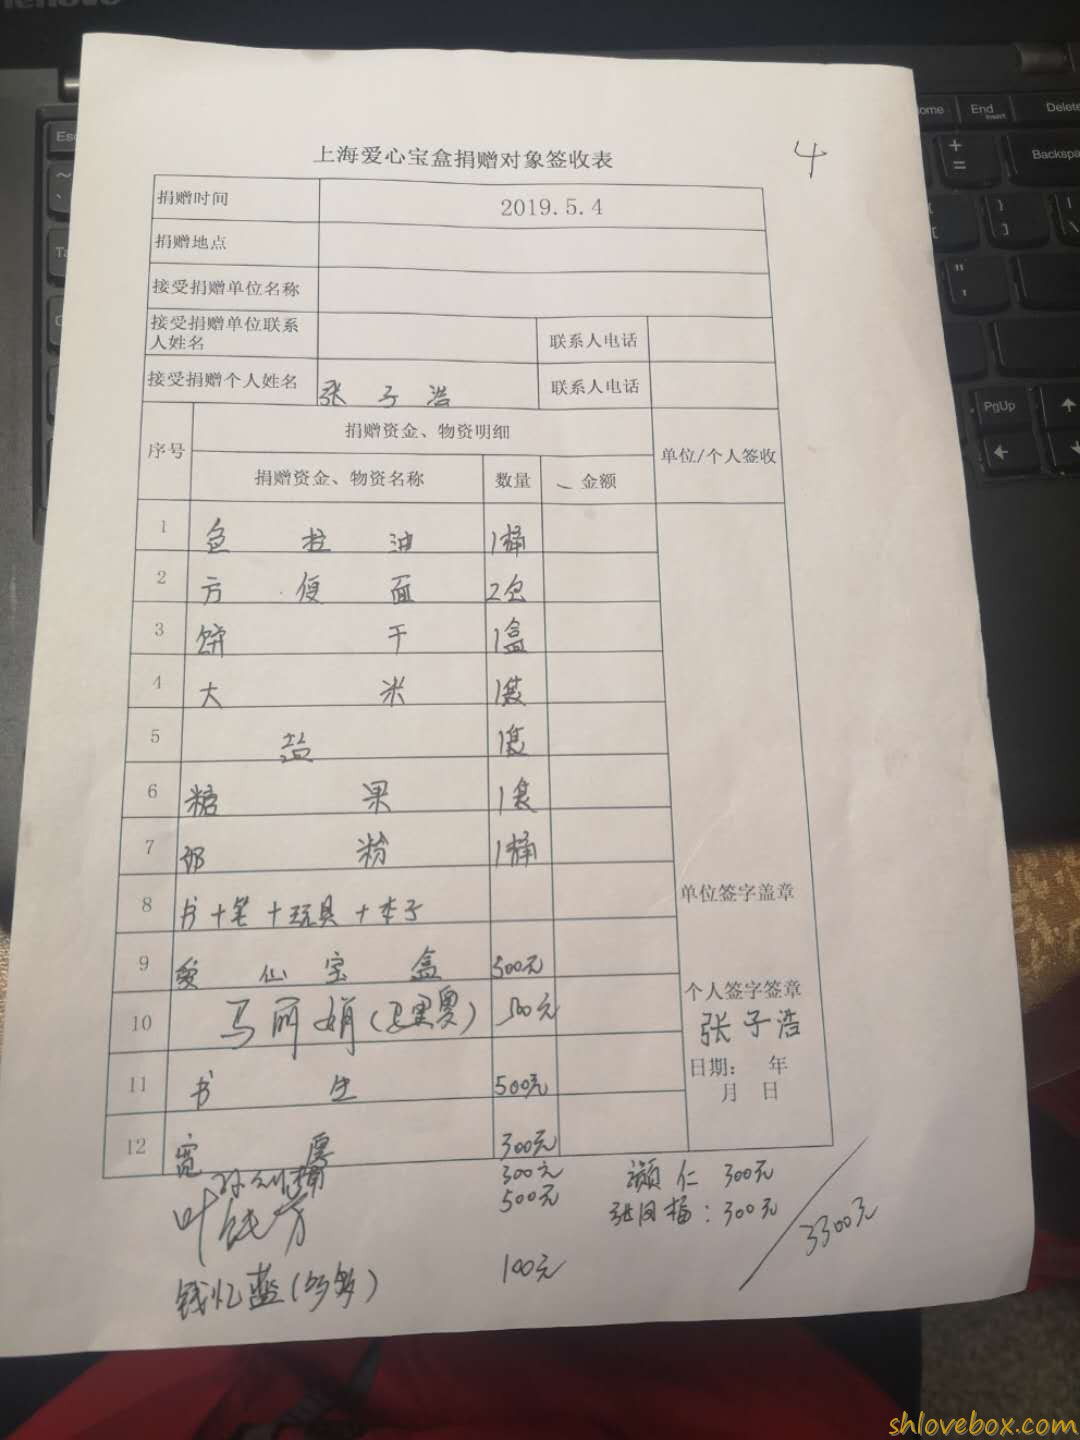 上海爱心宝盒捐赠对象签收表
4
捐赠时间 2019.5.4
捐赠地点
接受捐赠单位名称
接受捐赠单位联系人姓名 联系人电话
接受捐赠个人姓名 张子浩 联系人电话
序号 捐赠资金、物资明细 单位/个人签收
捐赠资金、物资名称 数量 金额
1 色拉油 1桶
2 方便面 2包
3 饼干 1盒
4 大米 1袋
5 盐 1袋
6 糖果 1袋
7 奶粉 1桶
8 书+笔+玩具+本子
单位签字盖章
9 爱心宝盒 500元
个人签字签章
张子浩
10 马丽娟 500元
日期: 年
月 日
11 书生 500元
12 宽厚 300元
300元 颖仁 300元
叶 500元 张凤梅:300元
3300元
钱忆 100元
shlovebox.com
Home
End
Insert
Delete
Backspa
PgUp
Esc